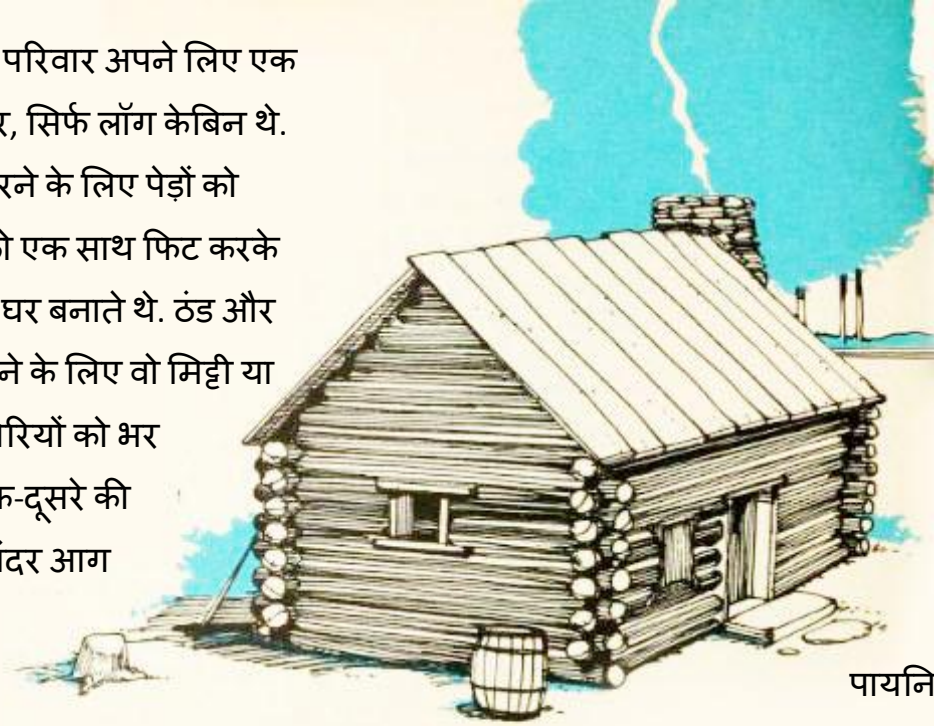 परिवार अपने लिए एक
र, सिर्फ लॉग केबिन थे.
रने के लिए पेड़ों को
एक साथ फिट करके
घर बनाते थे. ठंड और
ने के लिए वो मिट्टी या
रियों को भर
क-दूसरे की
ंदर आग
पायनि